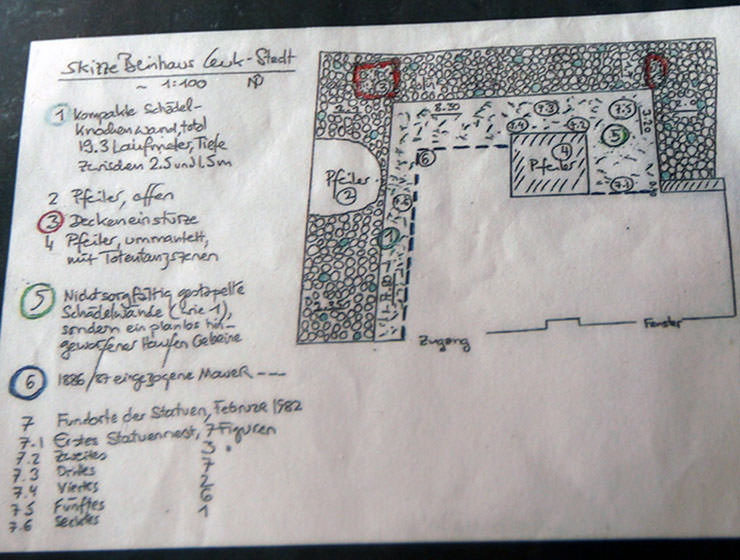 Skizze Beinhaus Leuk-Stadt
~ 1:100
1 Kompakte Schädel-
Knochenwand, total
19.3 Laufmeter, Tiefe
zwischen 2.5 und 1.5m
2 Pfeiler, offen
3 Deckeneinstürze
4 Pfeiler, ummantelt,
mit Totentanzszenen
5 Nicht sorgfältig gestapelte
Schädelwände (wie 1),
sondern ein planlos hin-
geworfener Haufen Gebeine
6 1886/87 eingezogene Mauer ---
7 Fundorte der Statuen, Februar 1982
7.1 Erstes Statuennest, 7 Figuren
7.2 Zweites 3 "
7.3 Drittes 7
7.4 Viertes 2
7.5 Fünftes 6
7.6 Sechstes 1
3
8.30
7.3
7.5
3.20
2.0
7.4
7.2
5
6
Pfeiler
4
Pfeiler
2
7.1
7.6
1
7.80
Zugang
Fenster